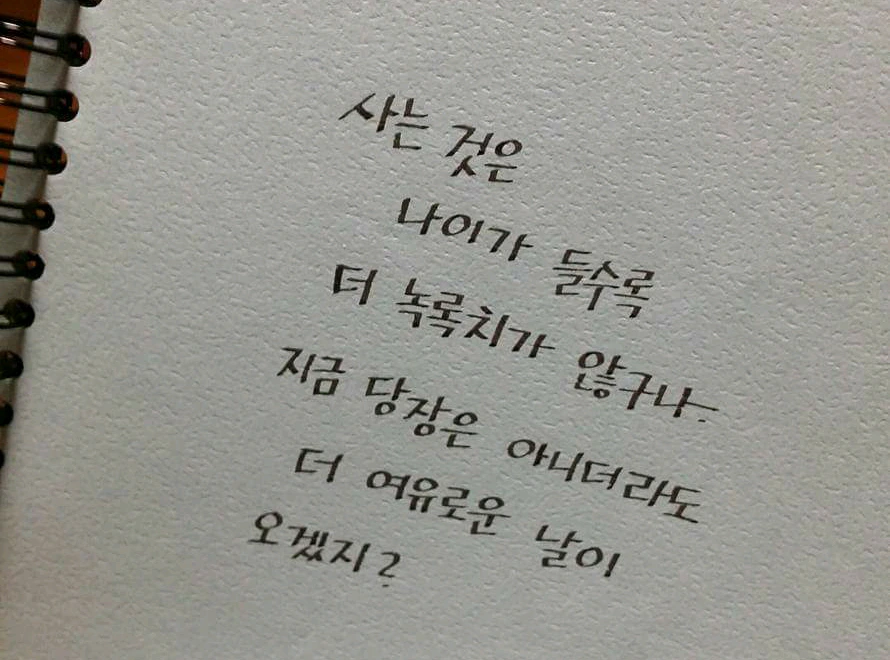 사는 것은
나이가 들수록
더 녹록치가 않구나.
지금 당장은 아니더라도
더 여유로운 날이
오겠지?